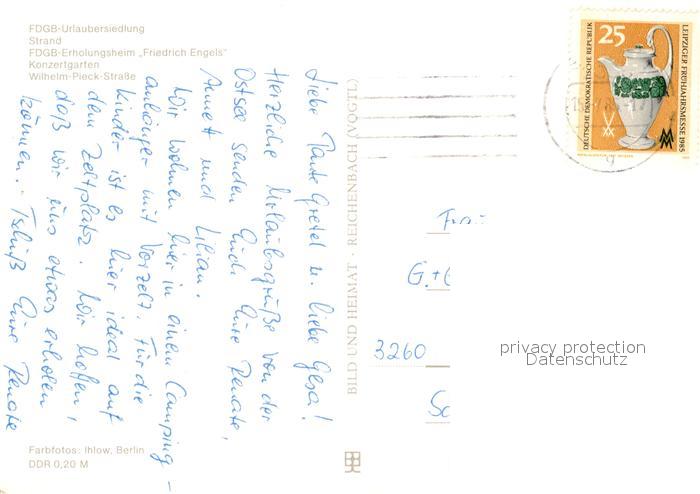 FDGB-Urlaubersiedlung
Strand
FDGB-Erholungsheim „Friedrich Engels"
Konzertgarten
Wilhelm-Pieck-Straße
Liebe Tante Gretel u. liebe Gesa!
Herzliche Urlaubsgrüße von der
Ostsee senden Euch Eure Renate,
Annett und Lilian.
Wir wohnen hier in einem Camping-
anhänger mit Vorzelt. Für die
Kinder ist es hier ideal auf
dem Zeltplatz. Wir hoffen,
daß wir uns etwas erholen
können. Tschüß Eure Renate
Farbfotos: Ihlow, Berlin
DDR 0,20 M
BILD UND HEIMAT · REICHENBACH (VOGTL)
25
DEUTSCHE DEMOKRATISCHE REPUBLIK
LEIPZIGER FRÜHJAHRSMESSE 1985
G.+
3260
privacy protection
Datenschutz